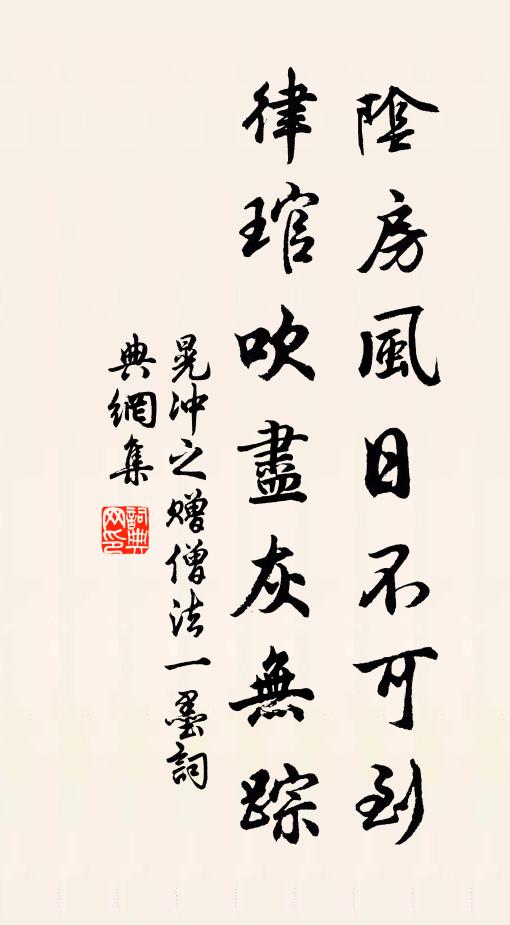 陰房風日不可到
律琯吹盡灰無踪
晃冲之赠僧法一墨詞
典網集
詞典网印